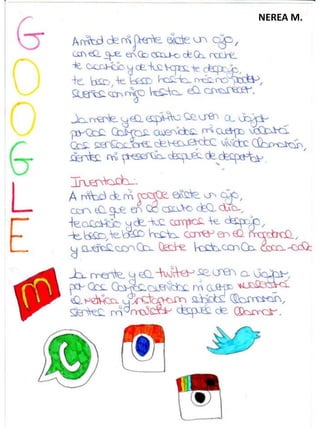 NEREA M.
GOOGLE
A mitad de mi frente existe un ojo,
con el que en lo oscuro de la noche
te acaricio y de tus ropas te despojo,
te beso, te beso hasta más no poder,
sueñas conmigo hasta el amanecer.
La mente y el espíritu se van a viajar
por las largas avenidas mi cuerpo
las sensaciones de recuerdos vividos llamarán,
sientes mi presencia después de despertar.
Inventada.
A mitad de mi google existe un ojo,
con el que en lo oscuro del día,
te acaricio y de tus compras te despojo,
te beso, te beso hasta comer en el mcdonald,
y sueñas con la leche hasta con la coca-cola
La mente y el twiter se van a viajar,
por las largas avenidas mi cuerpo
el metrica y instagram vividos llamarán,
sientes mi después de llamar.
m